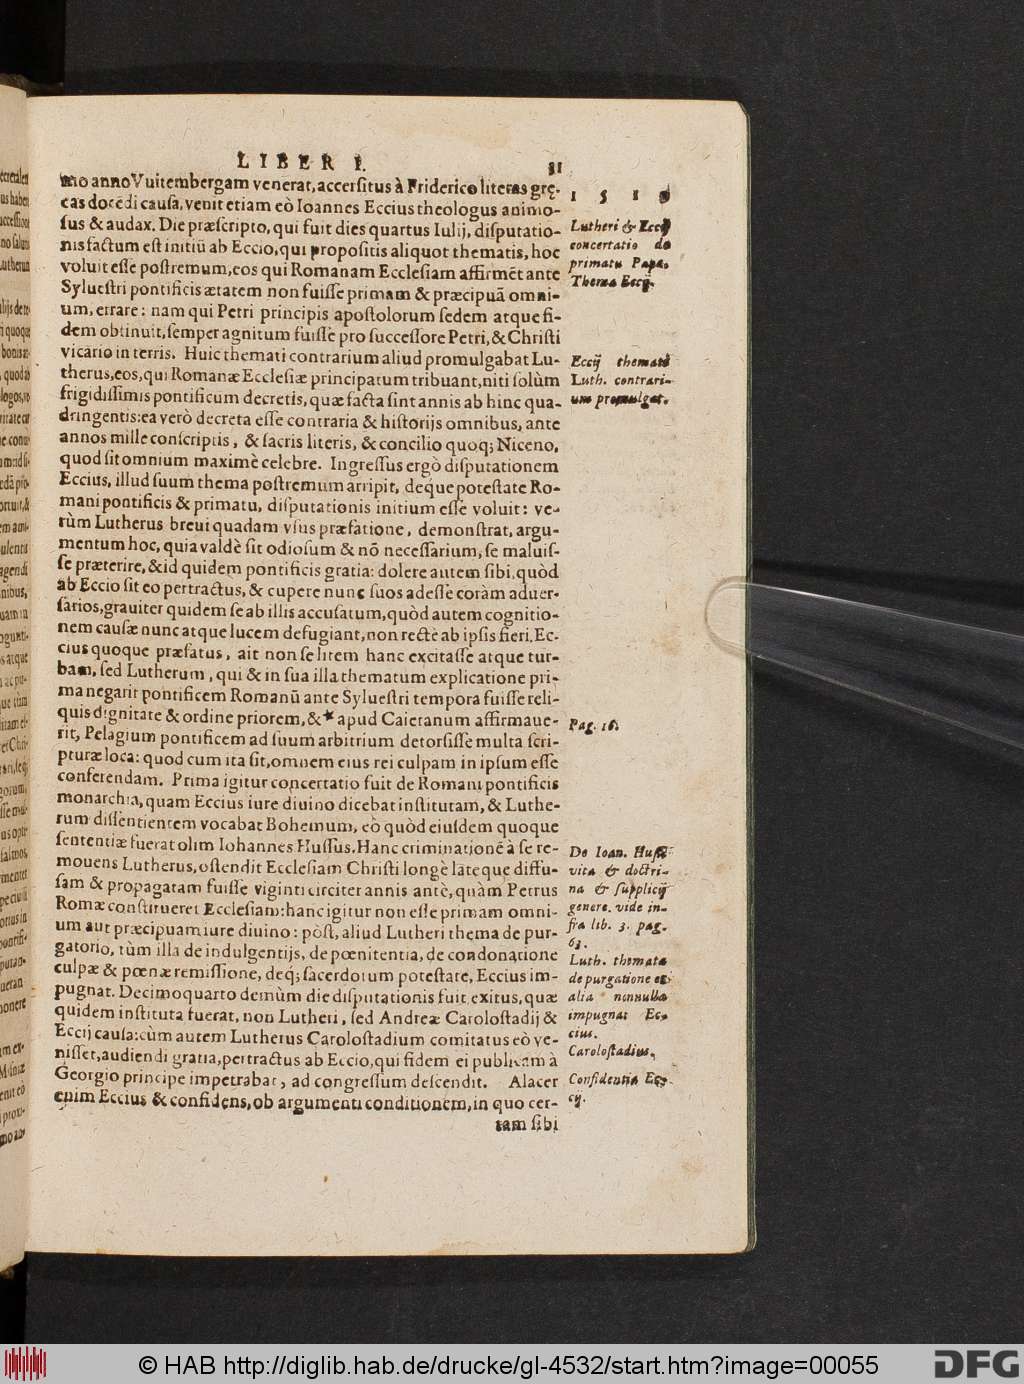 LIBER I. 31
mo anno Vuitembergam venerat, accersitus à Friderico literas gręcas
cas docēdi causa, venit etiam eò Ioannes Eccius theologus animo-
sus & audax. Die præscripto, qui fuit dies quartus Iulij, disputatio-
nis factum est initiū ab Eccio, qui propositis aliquot thematis, hoc
voluit esse postremum, eos qui Romanam Ecclesiam affirmēt ante
Syluestri pontificis ætatem non fuisse primam & præcipuā omni-
um, errare: nam qui Petri principis apostolorum sedem atque fi-
dem obtinuit, semper agnitum fuisse pro successore Petri, & Christi
vicario in terris. Huic themati contrarium aliud promulgabat Lu-
therus, eos, qui Romanæ Ecclesiæ principatum tribuant, niti solùm
frigidissimis pontificum decretis, quæ facta sint annis ab hinc qua-
dringentis: ea verò decreta esse contraria & historijs omnibus, ante
annos mille conscriptis, & sacris literis, & concilio quoq; Niceno,
quod sit omnium maximè celebre. Ingressus ergò disputationem
Eccius, illud suum thema postremum arripit, deque potestate Ro-
mani pontificis & primatu, disputationis initium esse voluit: ve-
rùm Lutherus breui quadam vsus præfatione, demonstrat, argu-
mentum hoc, quia valdè sit odiosum & nō necessarium, se maluis-
se præterire, & id quidem pontificis gratia: dolere autem sibi, quòd
ab Eccio sit eo pertractus, & cupere nunc suos adesse coràm aduer-
sarios, grauiter quidem se ab illis accusatum, quòd autem cognitio-
nem causæ nunc atque lucem defugiant, non rectè ab ipsis fieri. Ec-
cius quoque præfatus, ait non se litem hanc excitasse atque tur-
bam, sed Lutherum, qui & in sua illa thematum explicatione pri-
ma negarit pontificem Romanū ante Syluestri tempora fuisse reli-
quis dignitate & ordine priorem, & * apud Caietanum affirmaue-
rit, Pelagium pontificem ad suum arbitrium detorsisse multa scri-
pturæ loca: quod cum ita sit, omnem eius rei culpam in ipsum esse
conferendam. Prima igitur concertatio fuit de Romani pontificis
monarchia, quam Eccius iure diuino dicebat institutam, & Luthe-
rum dissentientem vocabat Bohemum, eò quòd eiusdem quoque
sententiæ fuerat olim Iohannes Hussus. Hanc criminationē à se re-
mouens Lutherus, ostendit Ecclesiam Christi longè lateque diffu-
sam & propagatam fuisse viginti circiter annis antè, quàm Petrus
Romæ constitueret Ecclesiam: hanc igitur non esse primam omni-
um aut præcipuam iure diuino: pòst, aliud Lutheri thema de pur-
gatorio, tùm illa de indulgentijs, de pœnitentia, de condonatione
culpæ & pœnæ remissione, deq; sacerdotum potestate, Eccius im-
pugnat. Decimoquarto demùm die disputationis fuit exitus, quæ
quidem instituta fuerat, non Lutheri, sed Andreæ Carolostadij &
Eccij causa: cùm autem Lutherus Carolostadium comitatus eò ve-
nisset, audiendi gratia, pertractus ab Eccio, qui fidem ei publicam à
Georgio principe impetrabat, ad congressum descendit. Alacer
enim Eccius & confidens, ob argumenti conditionem, in quo cer-
tam sibi
1 5 1 9
Lutheri & Eccij
concertatio de
primatu Papæ.
Thema Eccij.
Eccij themati
Luth. contrari-
um promulgat.
Pag. 16.
De Ioan. Hussi
vita & doctri-
na & supplicij
genere. vide in-
fra lib. 3. pag.
63.
Luth. themata
de purgatione et
alia nonnulla
impugnat Ec-
cius.
Carolostadius.
Confidentia Ec-
cij.
© HAB http://diglib.hab.de/drucke/gl-4532/start.htm?image=00055
DFG